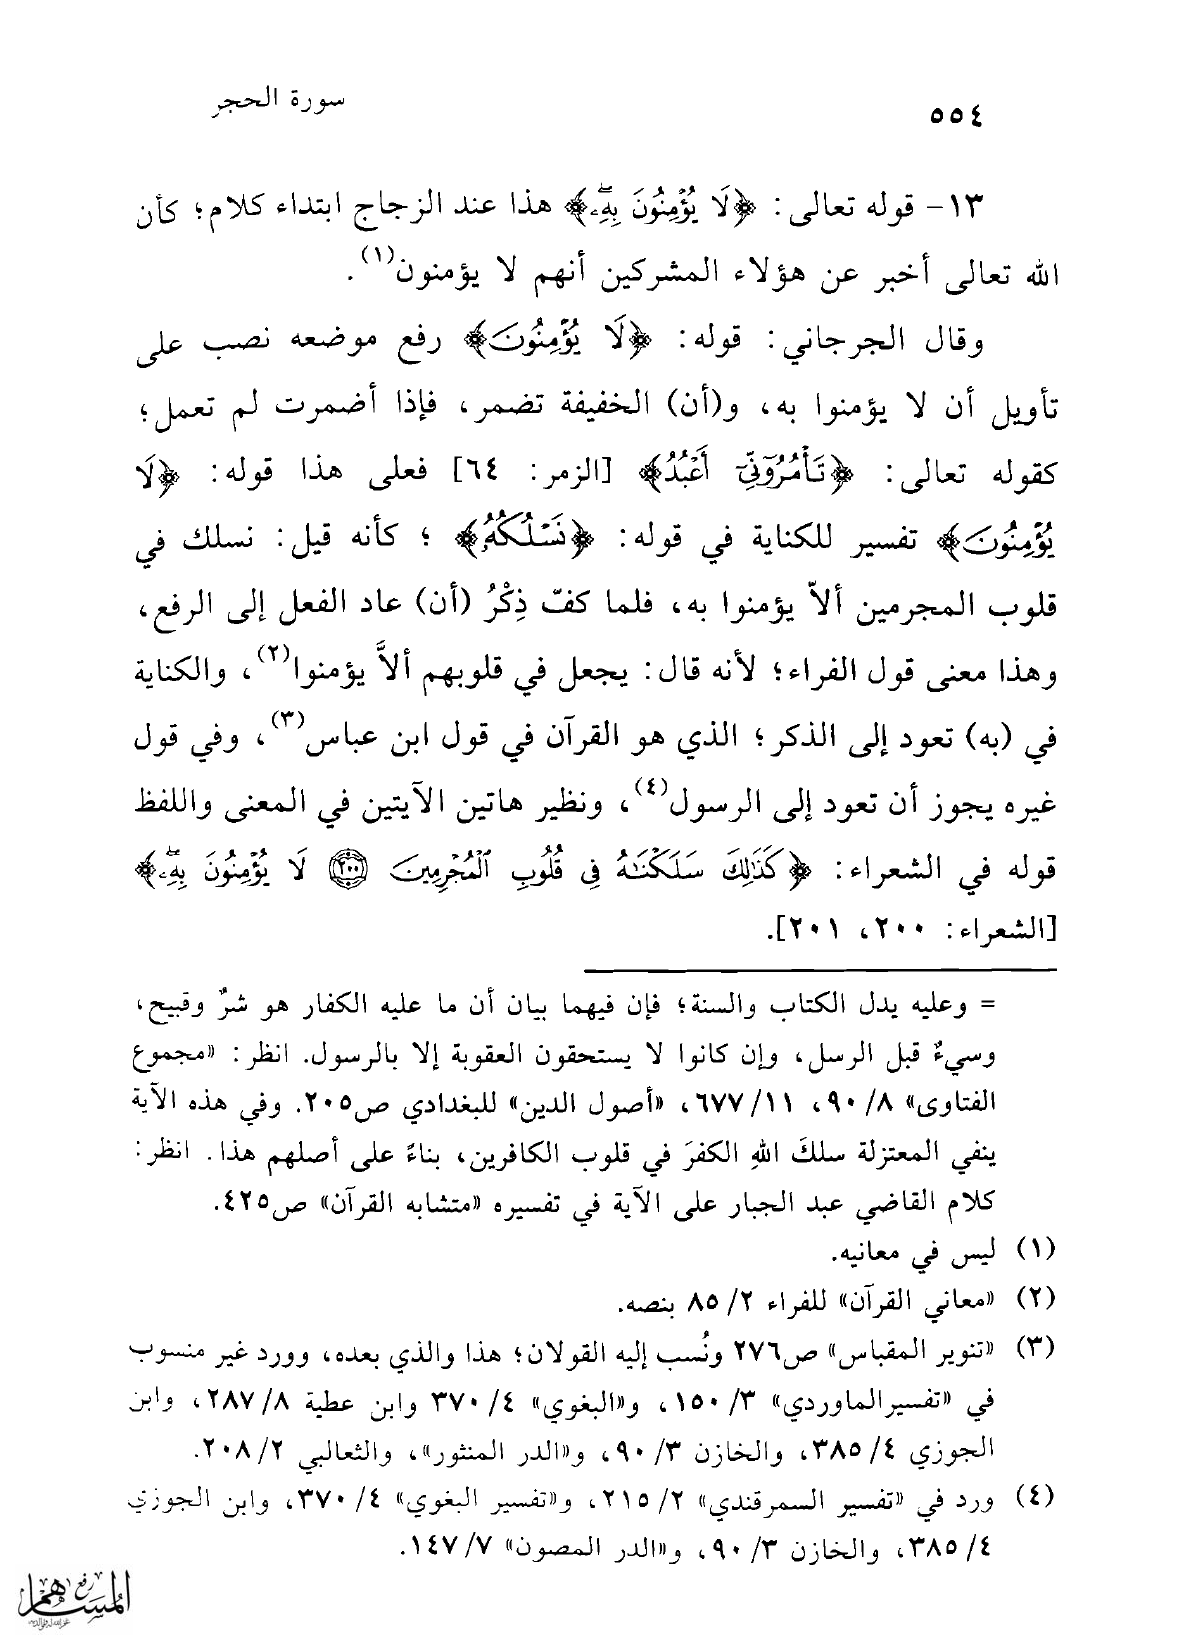 ٥٥٤
سورة الحجر
١٣- قوله تعالى: ﴿لَا يُؤْمِنُونَ بِهِۦ﴾ هذا عند الزجاج ابتداء كلام؛ كأن
الله تعالى أخبر عن هؤلاء المشركين أنهم لا يؤمنون(١).
وقال الجرجاني: قوله: ﴿لَا يُؤْمِنُونَ﴾ رفع موضعه نصب على
تأويل أن لا يؤمنوا به، و(أن) الخفيفة تضمر، فإذا أضمرت لم تعمل؛
كقوله تعالى: ﴿تَأْمُرُوٓنِّيٓ أَعْبُدُ﴾ [الزمر: ٦٤] فعلى هذا قوله: ﴿لَا
يُؤْمِنُونَ﴾ تفسير للكناية في قوله: ﴿نَسْلُكُهُۥ﴾ ؛ كأنه قيل: نسلك في
قلوب المجرمين ألاّ يؤمنوا به، فلما كفّ ذِكْرُ (أن) عاد الفعل إلى الرفع،
وهذا معنى قول الفراء؛ لأنه قال: يجعل في قلوبهم ألاَّ يؤمنوا(٢)، والكناية
في (به) تعود إلى الذكر؛ الذي هو القرآن في قول ابن عباس(٣)، وفي قول
غيره يجوز أن تعود إلى الرسول(٤)، ونظير هاتين الآيتين في المعنى واللفظ
قوله في الشعراء: ﴿كَذَٰلِكَ سَلَكْنَٰهُ فِي قُلُوبِ ٱلْمُجْرِمِينَ ٢٠٠ لَا يُؤْمِنُونَ بِهِۦ﴾
[الشعراء: ٢٠٠، ٢٠١].
= وعليه يدل الكتاب والسنة؛ فإن فيهما بيان أن ما عليه الكفار هو شرٌ وقبيح،
وسيءٌ قبل الرسل، وإن كانوا لا يستحقون العقوبة إلا بالرسول. انظر: «مجموع
الفتاوى» ٨/ ٩٠، ١١/ ٦٧٧، «أصول الدين» للبغدادي ص٢٠٥. وفي هذه الآية
ينفي المعتزلة سلكَ اللهِ الكفرَ في قلوب الكافرين، بناءً على أصلهم هذا. انظر:
كلام القاضي عبد الجبار على الآية في تفسيره «متشابه القرآن» ص٤٢٥.
(١) ليس في معانيه.
(٢) «معاني القرآن» للفراء ٢/ ٨٥ بنصه.
(٣) «تنوير المقباس» ص٢٧٦ ونُسب إليه القولان؛ هذا والذي بعده، وورد غير منسوب
في «تفسيرالماوردي» ٣/ ١٥٠، و«البغوي» ٤/ ٣٧٠ وابن عطية ٨/ ٢٨٧، وابن
الجوزي ٤/ ٣٨٥، والخازن ٣/ ٩٠، و«الدر المنثور»، والثعالبي ٢/ ٢٠٨.
(٤) ورد في «تفسير السمرقندي» ٢/ ٢١٥، و«تفسير البغوي» ٤/ ٣٧٠، وابن الجوزي
٤/ ٣٨٥، والخازن ٣/ ٩٠، و«الدر المصون» ٧/ ١٤٧.